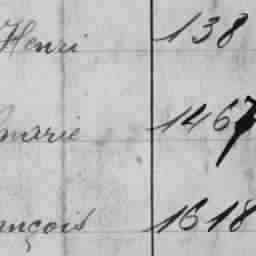 Henri 138
marie 1467
ançois 1618